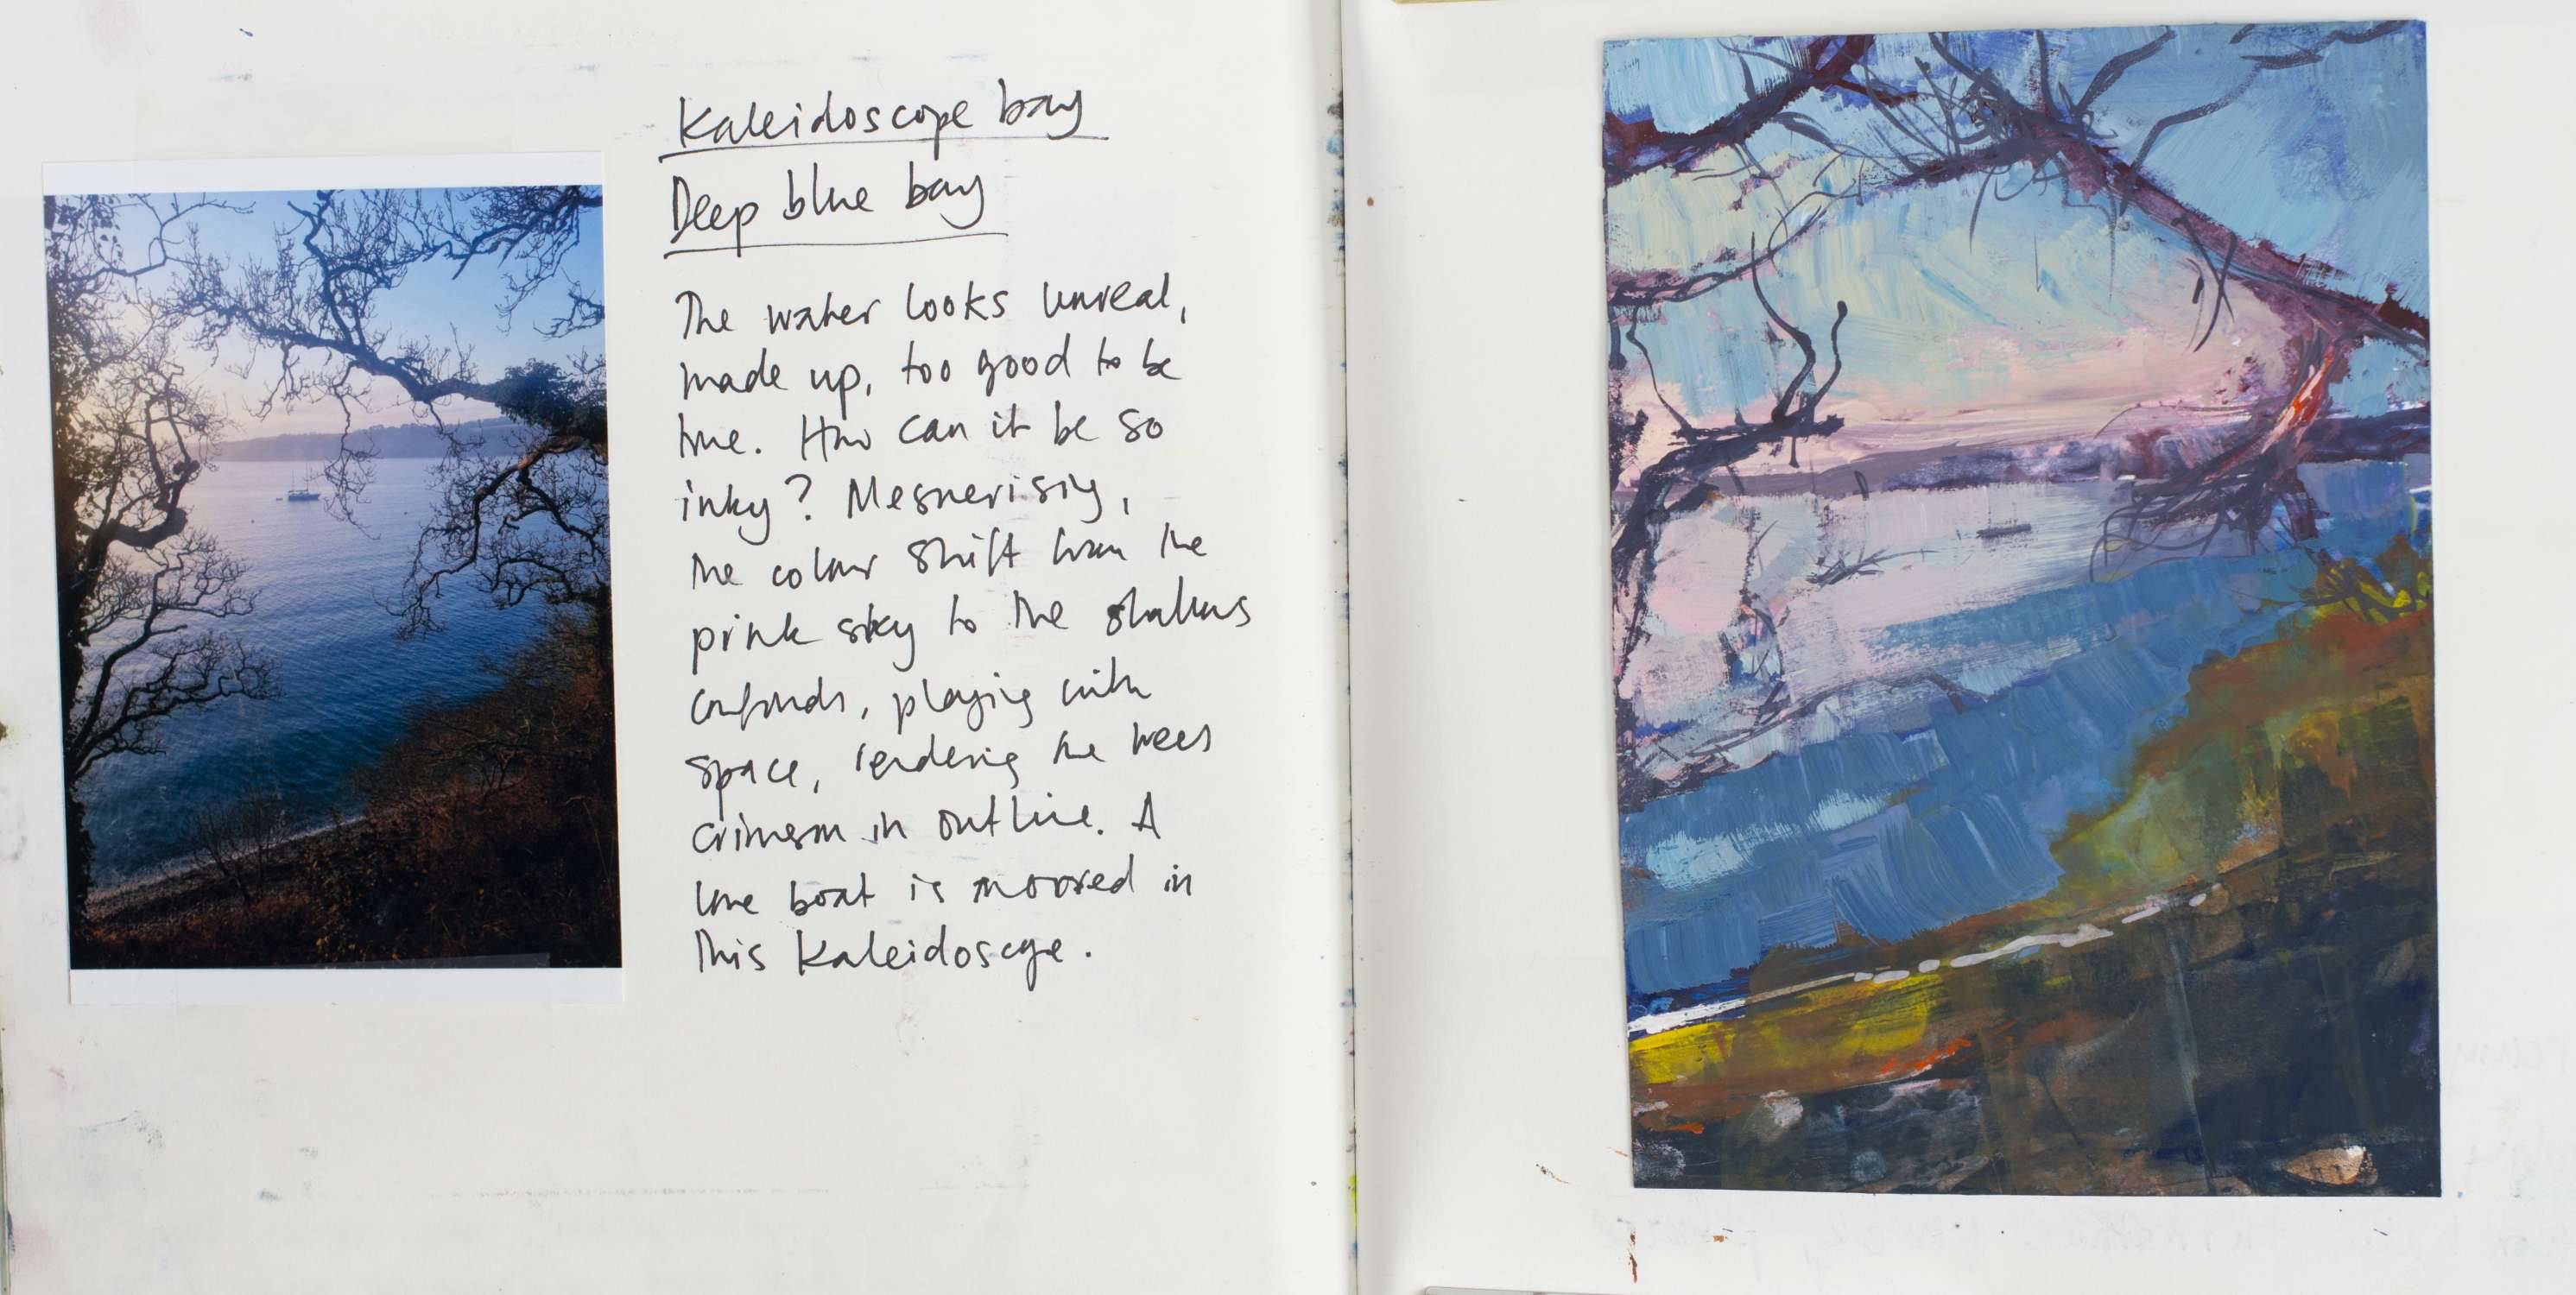 Kaleidoscope bay
Deep blue bay
The water looks unreal,
made up, too good to be
true. How can it be so
inky? Mesmerising,
the colour shift from the
pink sky to the shallows
confounds, playing with
space, rendering the trees
crimson in outline. A
lone boat is moored in
this Kaleidoscope.